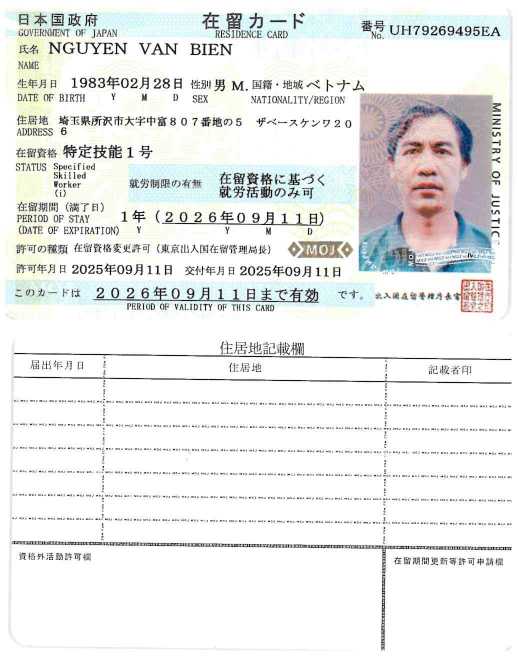 日本国政府 在留カード 番号 UH79269495EA
GOVERNMENT OF JAPAN RESIDENCE CARD No.
氏名 NGUYEN VAN BIEN
NAME
生年月日 1983年02月28日 性別 男 M. 国籍・地域 ベトナム
DATE OF BIRTH Y M D SEX NATIONALITY/REGION
住居地 埼玉県所沢市大字中富807番地の5 ザベースケンワ20
ADDRESS 6
在留資格 特定技能1号
STATUS Specified
Skilled
Worker
(i)
就労制限の有無 在留資格に基づく
就労活動のみ可
在留期間(満了日)
PERIOD OF STAY 1年(2026年09月11日)
(DATE OF EXPIRATION) Y Y M D
許可の種類 在留資格変更許可(東京出入国在留管理局長)
MOJ
許可年月日 2025年09月11日 交付年月日 2025年09月11日
このカードは 2026年09月11日まで有効 です。
PERIOD OF VALIDITY OF THIS CARD
出入国在留管理庁長官
MINISTRY OF JUSTICE
住居地記載欄
届出年月日 住居地 記載者印
資格外活動許可欄 在留期間更新等許可申請欄